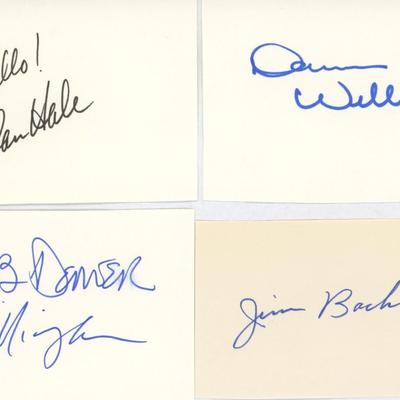 llo!
lan Hale
Dawn
Well
B DENVER
illigan
Jim Back